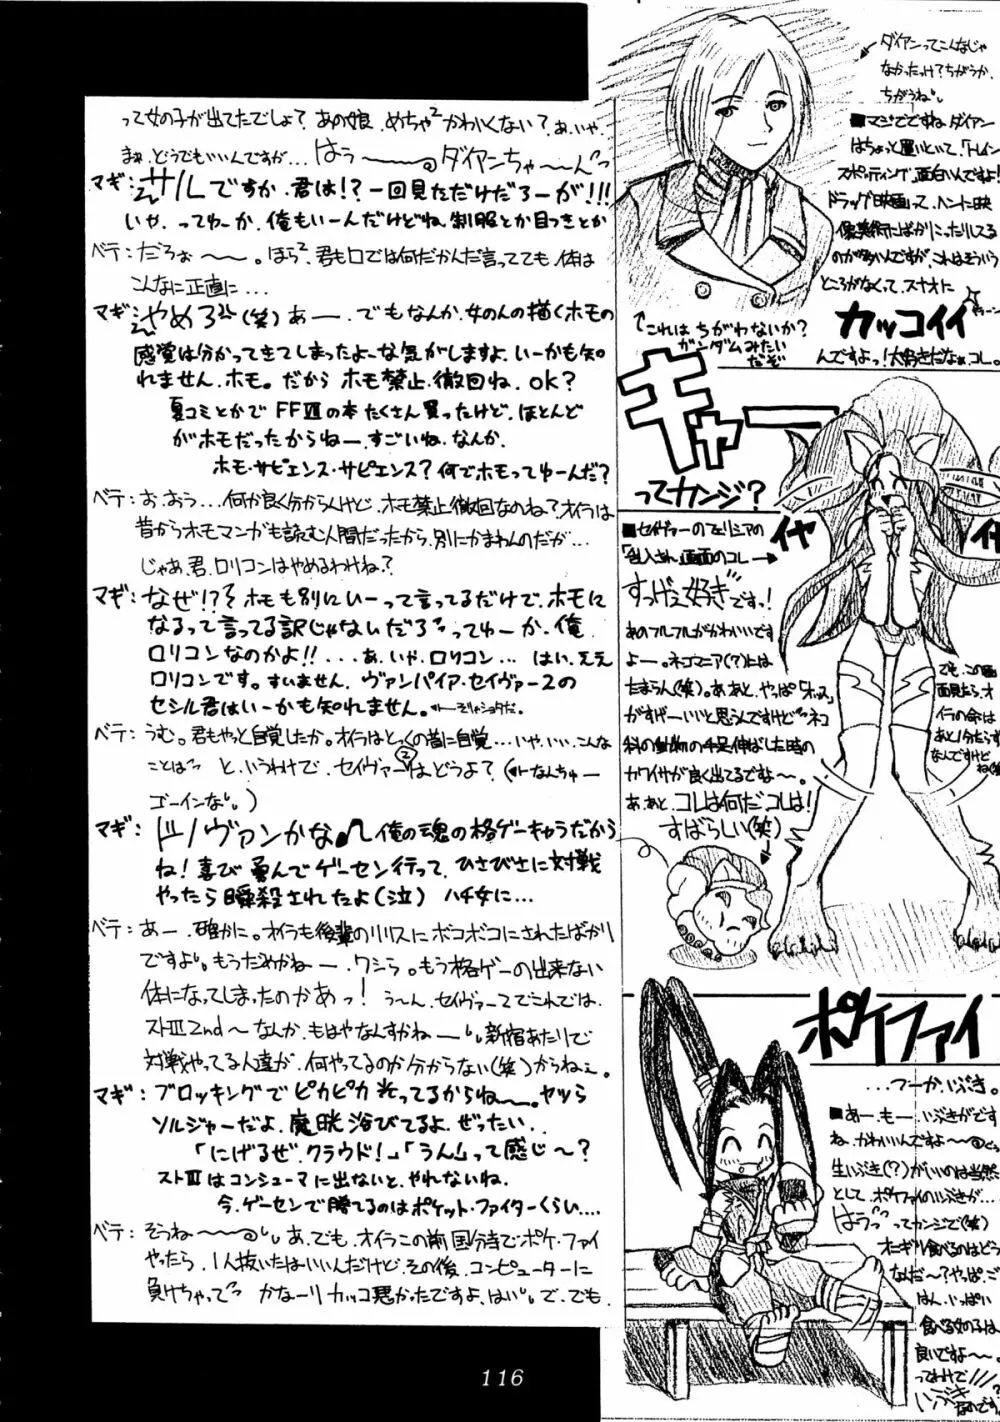 って女の子が出てたでしょ?あの娘、めちゃ²かわいくない?あ、いや、
まぁ、どうでもいいんですが…はぅ〜〜〜ダイアンちゃ〜ん
マギ:サルですか、君は!?一回見ただけだろーが!!!
いや、ってゆーか、俺もいーんだけどね、制服とか目つきとか
ベテ:だろぉ〜〜〜。ほら²、君も口では何だかんだ言ってても、体は
こんなに正直に…
マギ:やめろ(笑)あー、でもなんか、女のんの描くホモの
感覚は分かってきてしまったよーな気がしますよ、いーかも知
れません、ホモ。だから ホモ禁止、撤回ね、OK?
夏コミとかで FFⅦの本 たくさん 買ったけど、ほとんど
がホモだったからねー、すごいね、なんか、
ホモ・サピエンス・サピエンス?何でホモってゆーんだ?
ベテ:お、おう…何か良く分からんけど、ホモ禁止撤回なのね?オイラは
昔からホモマンガも読む人間だったから、別にかまわんのだが…
じゃあ、君、ロリコンはやめるわけね?
マギ:なぜ!?ホモも別にいーって言ってるだけで、ホモに
なるって言ってる訳じゃないだろってゆーか、俺
ロリコンなのかよ!!...あ、いや、ロリコン… はい、ええ
ロリコンです。すいません、ヴァンパイア・セイヴァー2の
セシル君はいーかも知れません。←ーそりゃショタだ。
ベテ:うむ。君もやっと自覚したか。オイラはとっくの昔に自覚…いや、いい、こんな
ことは と、いうわけで、セイヴァー2はどうよ?(←なんちゅー
ゴーインな、)
マギ:ドノヴァンかな 俺の魂の格ゲーキャラだから
ね!喜び勇んでゲーセン行って、ひさびさに対戦
やったら瞬殺されたよ(泣) ハチ女に…
ベテ:あー、確かに。オイラも後輩のリリスにボコボコにされたばかり
ですよ、もうだめかねー、ワシら。もう格ゲーの出来ない
体になってしまったのかあっ! う〜ん、セイヴァー2でこれでは、
ストⅢ2nd〜なんか、もはやなんすかねー、新宿あたりで
対戦やってる人達が、何やってるのか分からない(笑)からねぇ。
マギ:ブロッキングでピカピカ光ってるからねー、ヤツら
ソルジャーだよ、魔晄浴びてるよ、ぜったい、
「にげるぜ、クラウド!」「うん」って感じ〜?
ストⅢはコンシューマに出ないと、やれないね、
今、ゲーセンで勝てるのはポケット・ファイターくらい....
ベテ:そうね〜〜〜、あ、でも、オイラこの前国分寺でポケ・ファイ
やったら、1人抜いたはいいんだけど、その後、コンピューターに
負けちゃって かな〜り カッコ悪かったですよ、はい、で、でも、
ダイアンってこんなじゃ
なかったっけ?ちがうか、
ちがうね、
■マジでですね、ダイアン
はちょっと置いといて、「トレイン
スポッティング」、面白いんですよ!
ドラッグ映画って、ヘンに映
像美術にばかりこったりしてる
のが多いんですが、これはそういう
ところがなくて、スナオに
カッコイイ
んですよっ!大好きだなぁ、コレ。
これは ちがわないか?
ガンダムみたい
だぞ
キャー
ってカンジ?
■セイヴァーのフェリシアの
「乱入され」画面のコレ→
すっげえ好きですっ!
あのフルフルがかわいいです
よー。ネコマニア(?)には
たまらん(笑)。あ、あと、やっぱ「ネコ」
がすげーいいと思うんですけど、ネコ
科の動物の手足伸ばした時の
カワイサが良く出てるですよ〜。
あ、あと、コレは何だ、コレは!
すばらしい(笑)
イヤ
イヤ
でも、この画
面見たら、オ
イラの命は
あと1分たらず
なんですけど
ね(笑)
ポケファイ
...つーか、いぶき。
■あー、もー、いぶきがです
ね、かわいいんですよ〜〜
生いぶき(?)がいいのは当然
として、ポケファイのいぶきが…
はうっってカンジで(笑)
オニギリ食べるのはどう
なんだ〜?やっぱ、ご
はん、いっぱい
食べる女の子は
良いですよ〜。
ってわけで///
いぶき
なのです。
116